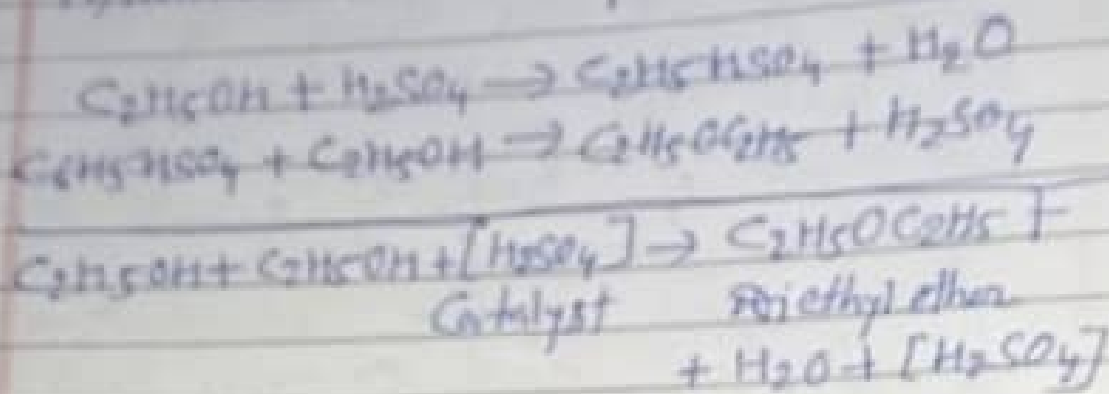 C2H5OH + H2SO4 → C2H5HSO4 + H2O
C6H5HSO4 + C2H5OH → C2H5OC2H5 + H2SO4
C2H5OH + C2H5OH + [H2SO4] → C2H5OC2H5 +
Catalyst Diethyl ether
+ H2O + [H2SO4]